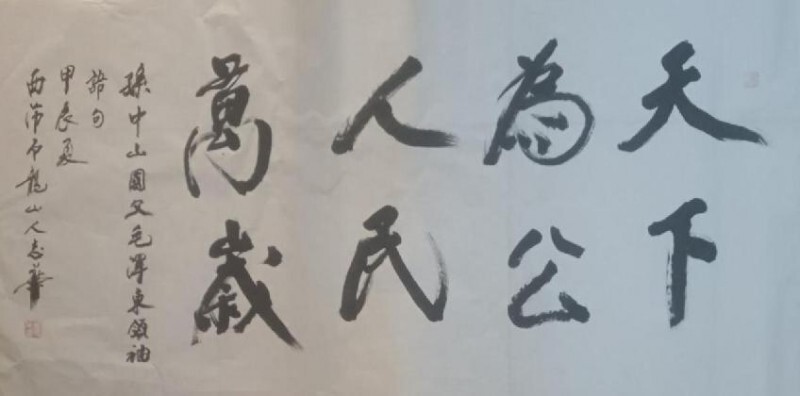 天下
為公
人民
萬歲
孫中山國父毛澤東領袖
語句
甲辰夏
龍山人志華